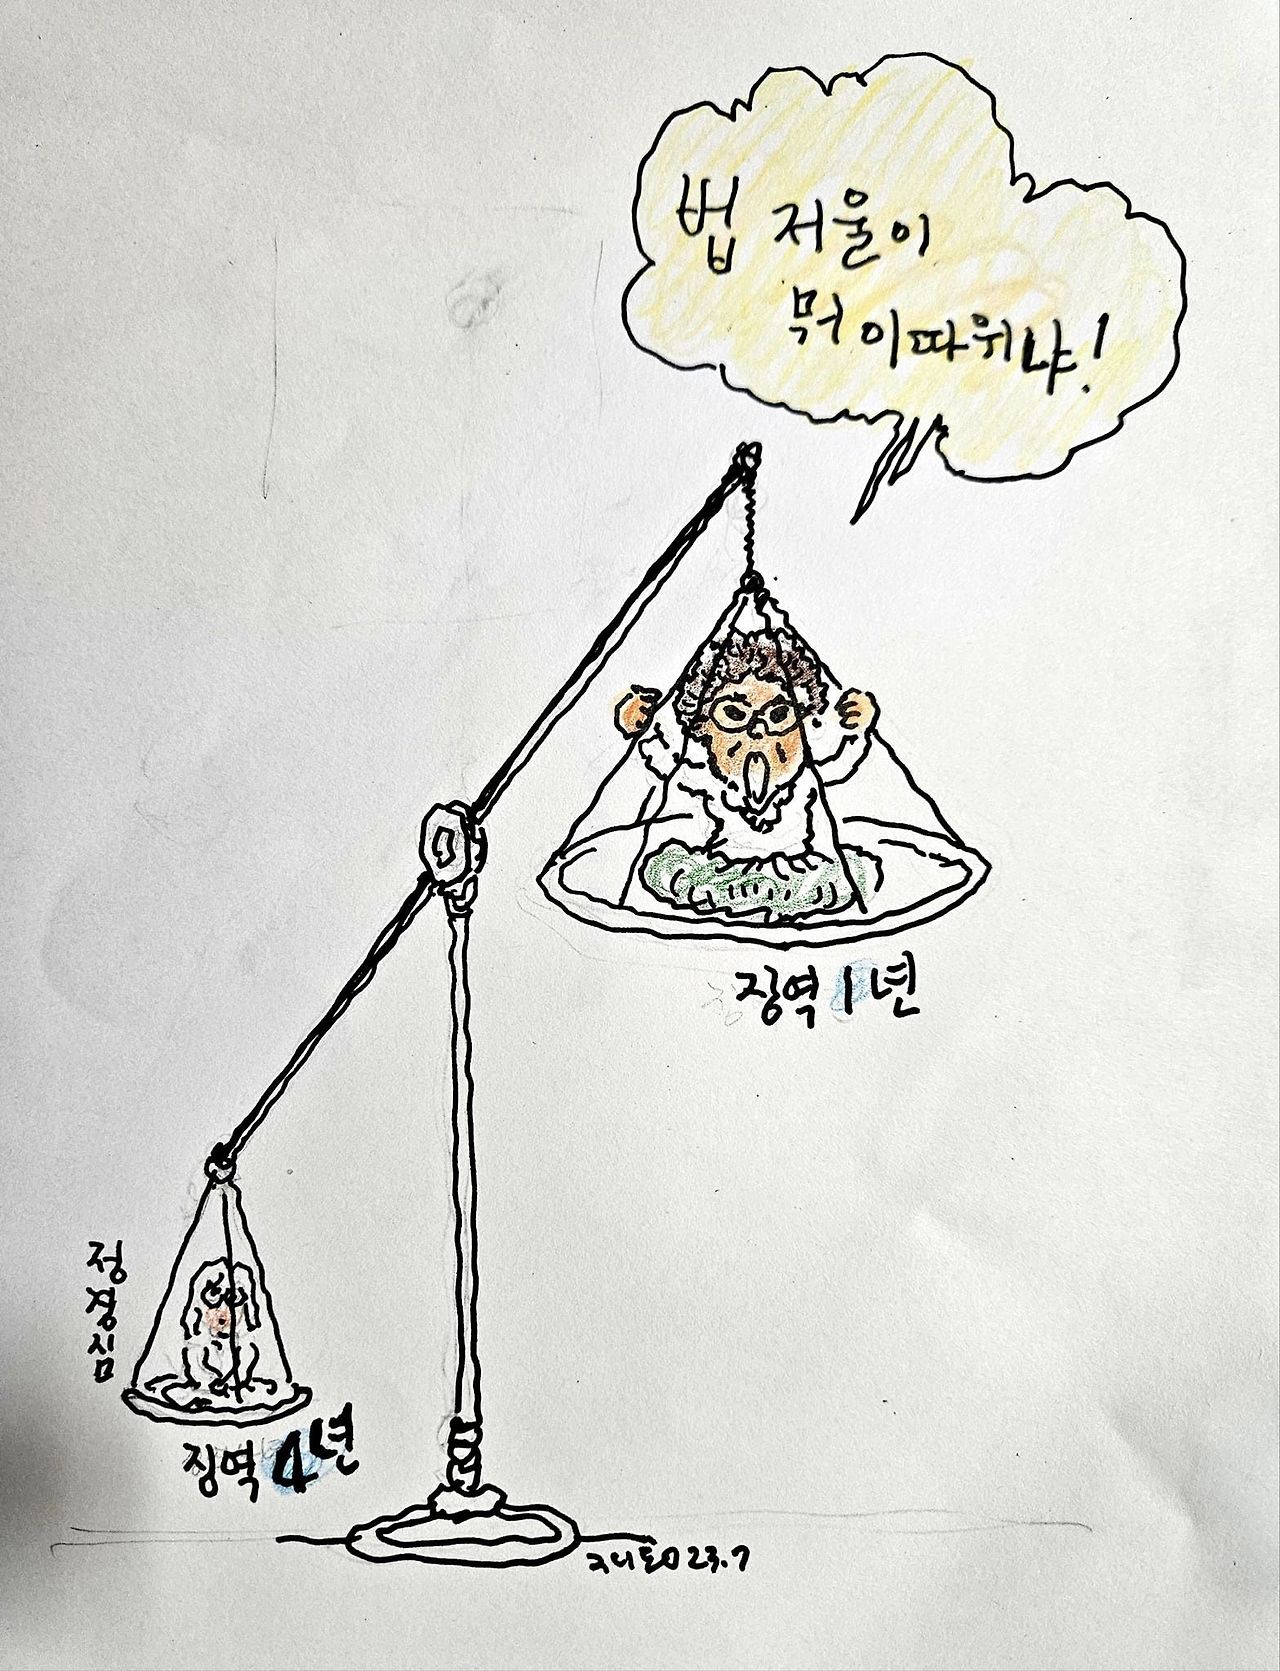 법 저울이
뭐 이따위냐!
징역 1년
정경심
징역 4년
23.7